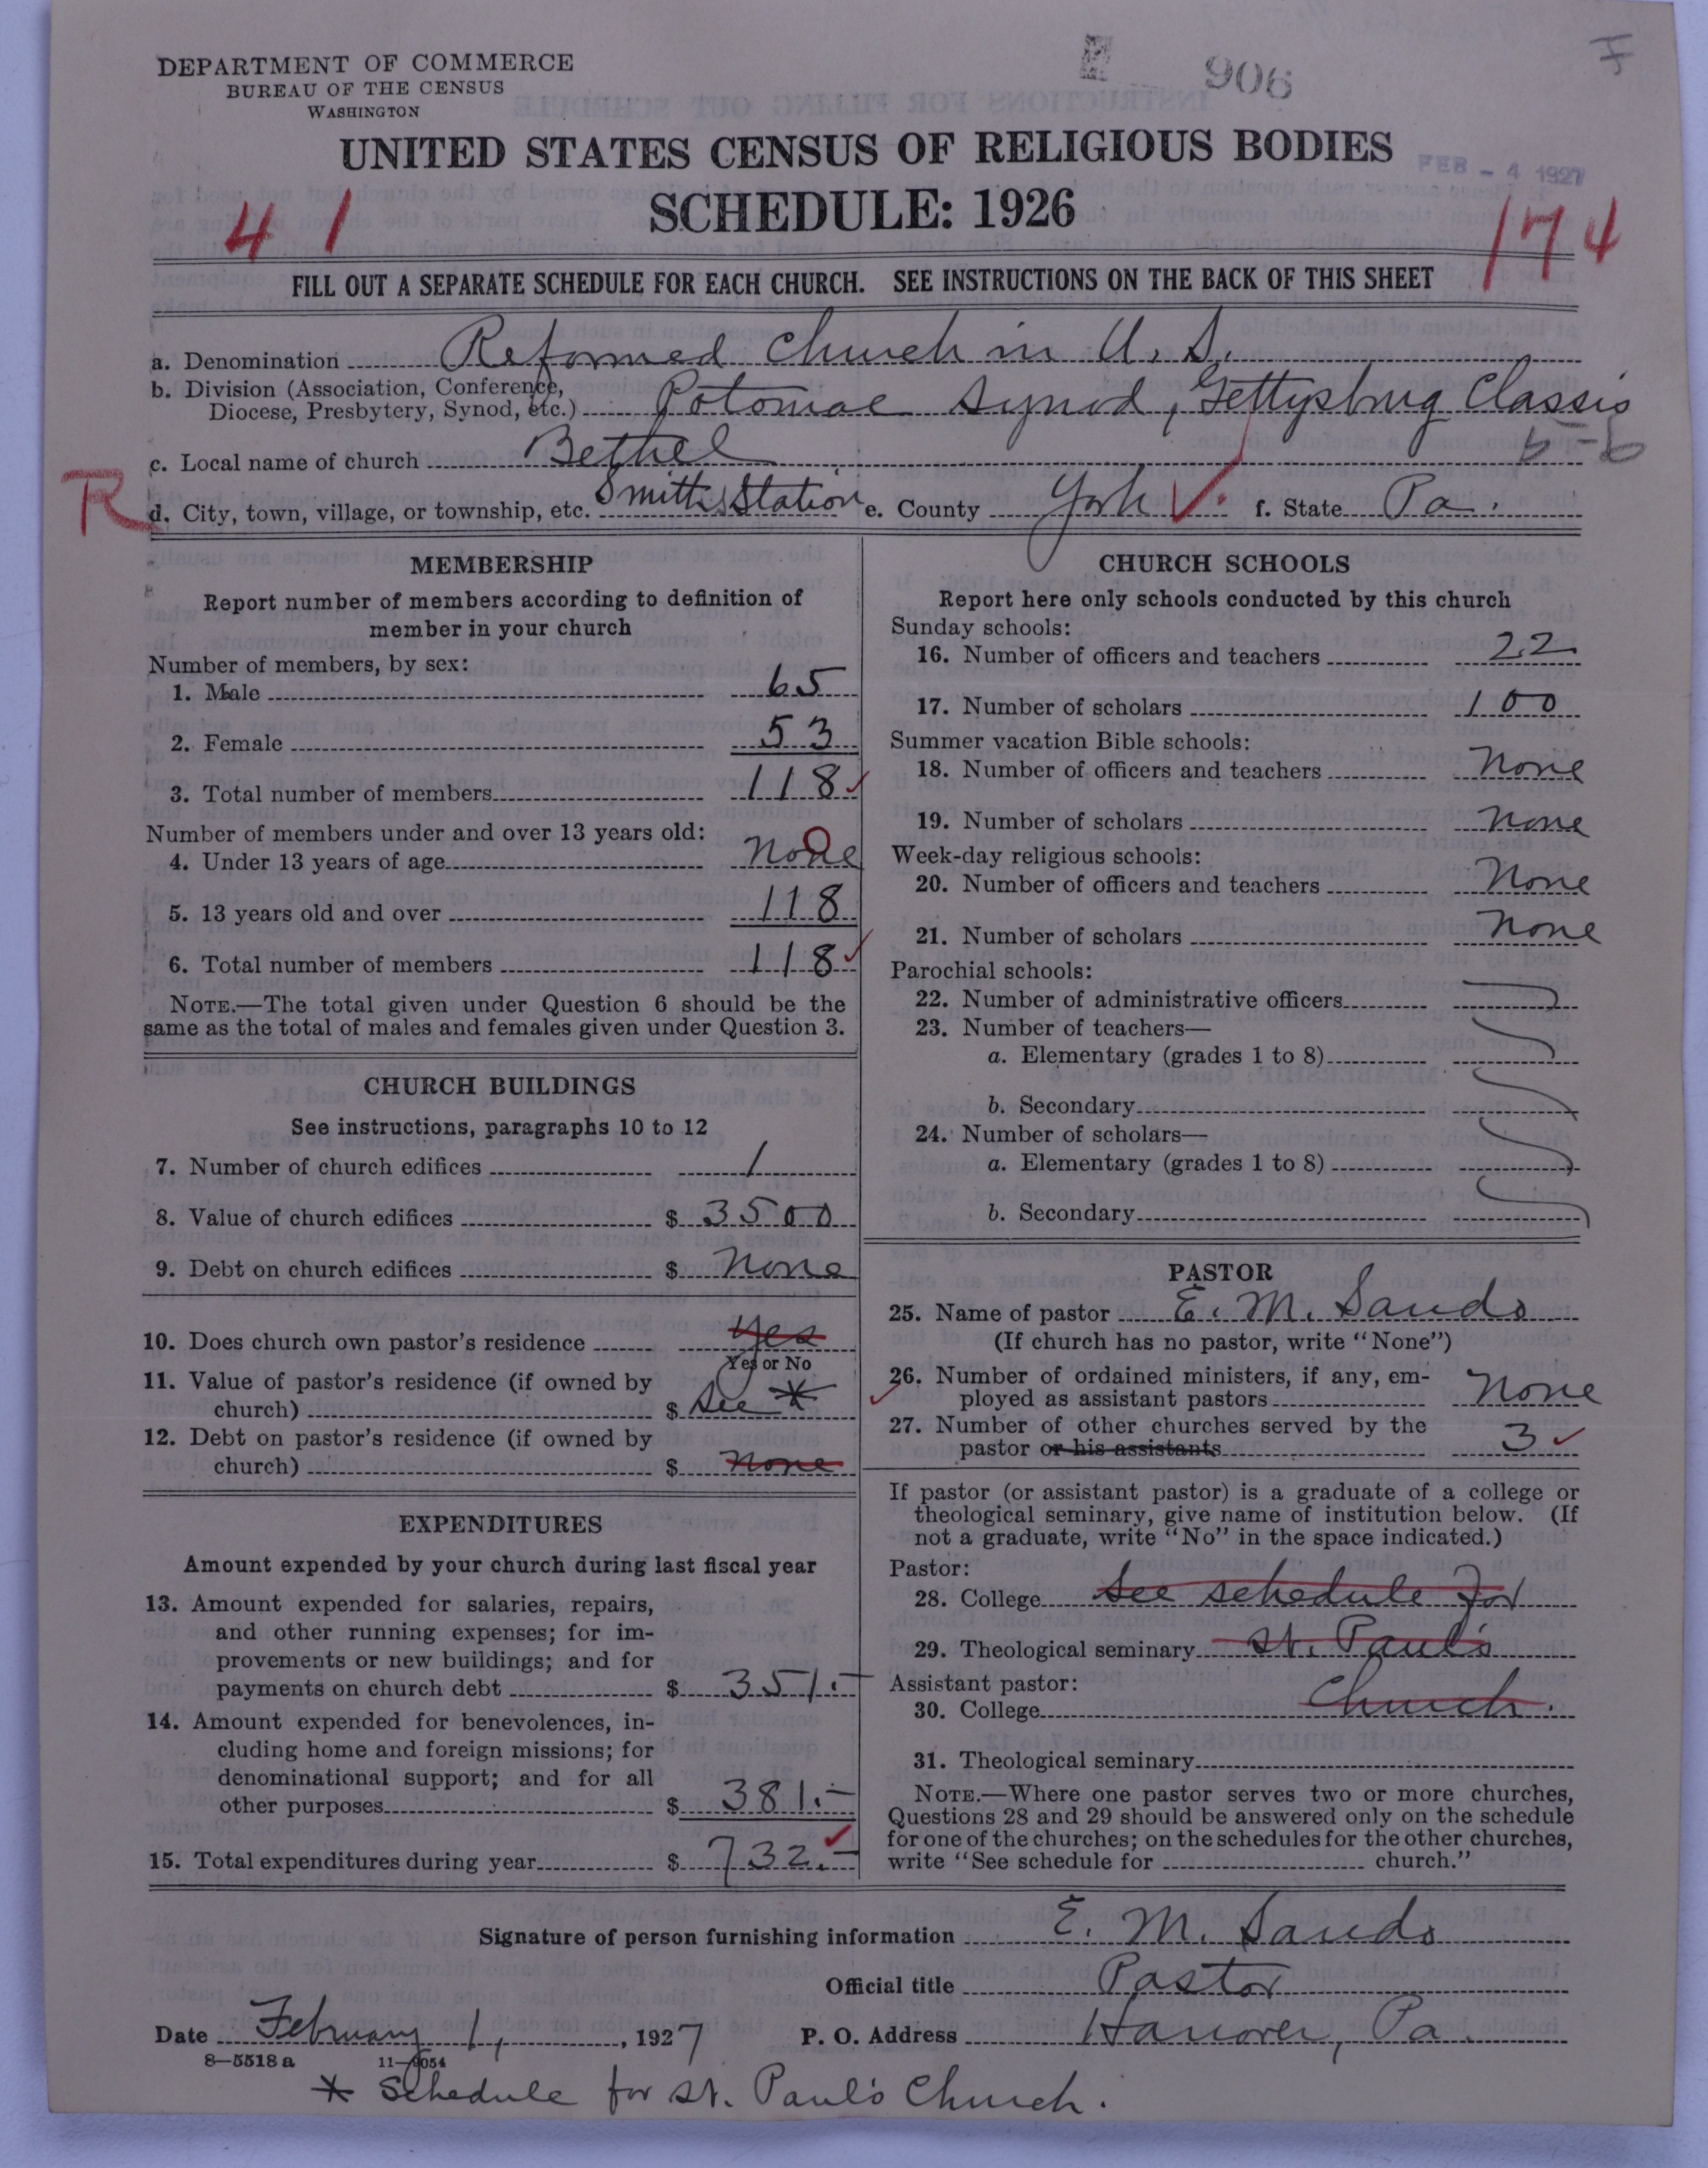 DEPARTMENT OF COMMERCE
BUREAU OF THE CENSUS
WASHINGTON
906
F
UNITED STATES CENSUS OF RELIGIOUS BODIES
FEB - 4 1927
SCHEDULE: 1926
41
174
FILL OUT A SEPARATE SCHEDULE FOR EACH CHURCH. SEE INSTRUCTIONS ON THE BACK OF THIS SHEET
a. Denomination Reformed Church in U. S.
b. Division (Association, Conference,
Diocese, Presbytery, Synod, etc.) Potomac Synod, Gettysburg Classis
c. Local name of church Bethel
R
d. City, town, village, or township, etc. Smith's Station e. County York f. State Pa.
MEMBERSHIP
Report number of members according to definition of
member in your church
Number of members, by sex:
1. Male 65
2. Female 53
3. Total number of members 118
Number of members under and over 13 years old:
4. Under 13 years of age none
5. 13 years old and over 118
6. Total number of members 118
NOTE.—The total given under Question 6 should be the
same as the total of males and females given under Question 3.
CHURCH BUILDINGS
See instructions, paragraphs 10 to 12
7. Number of church edifices 1
8. Value of church edifices $ 3500
9. Debt on church edifices $ None
10. Does church own pastor's residence Yes
Yes or No
11. Value of pastor's residence (if owned by
church) $ See *
12. Debt on pastor's residence (if owned by
church) $ none
EXPENDITURES
Amount expended by your church during last fiscal year
13. Amount expended for salaries, repairs,
and other running expenses; for im-
provements or new buildings; and for
payments on church debt $ 351.–
14. Amount expended for benevolences, in-
cluding home and foreign missions; for
denominational support; and for all
other purposes $ 381.–
15. Total expenditures during year $ 732.–
CHURCH SCHOOLS
Report here only schools conducted by this church
Sunday schools:
16. Number of officers and teachers 22
17. Number of scholars 100
Summer vacation Bible schools:
18. Number of officers and teachers None
19. Number of scholars None
Week-day religious schools:
20. Number of officers and teachers None
21. Number of scholars None
Parochial schools:
22. Number of administrative officers
23. Number of teachers—
a. Elementary (grades 1 to 8)
b. Secondary
24. Number of scholars—
a. Elementary (grades 1 to 8)
b. Secondary
PASTOR
25. Name of pastor E. M. Sando
(If church has no pastor, write "None")
26. Number of ordained ministers, if any, em-
ployed as assistant pastors None
27. Number of other churches served by the
pastor or his assistants 3
If pastor (or assistant pastor) is a graduate of a college or
theological seminary, give name of institution below. (If
not a graduate, write "No" in the space indicated.)
Pastor:
28. College See schedule for
29. Theological seminary St. Paul's
Assistant pastor:
30. College Church.
31. Theological seminary
NOTE.—Where one pastor serves two or more churches,
Questions 28 and 29 should be answered only on the schedule
for one of the churches; on the schedules for the other churches,
write "See schedule for church."
Signature of person furnishing information E. M. Sando
Official title Pastor
Date February 1, 1927 P. O. Address Hanover, Pa.
8—5518 a 11—9054
* Schedule for St. Paul's Church.